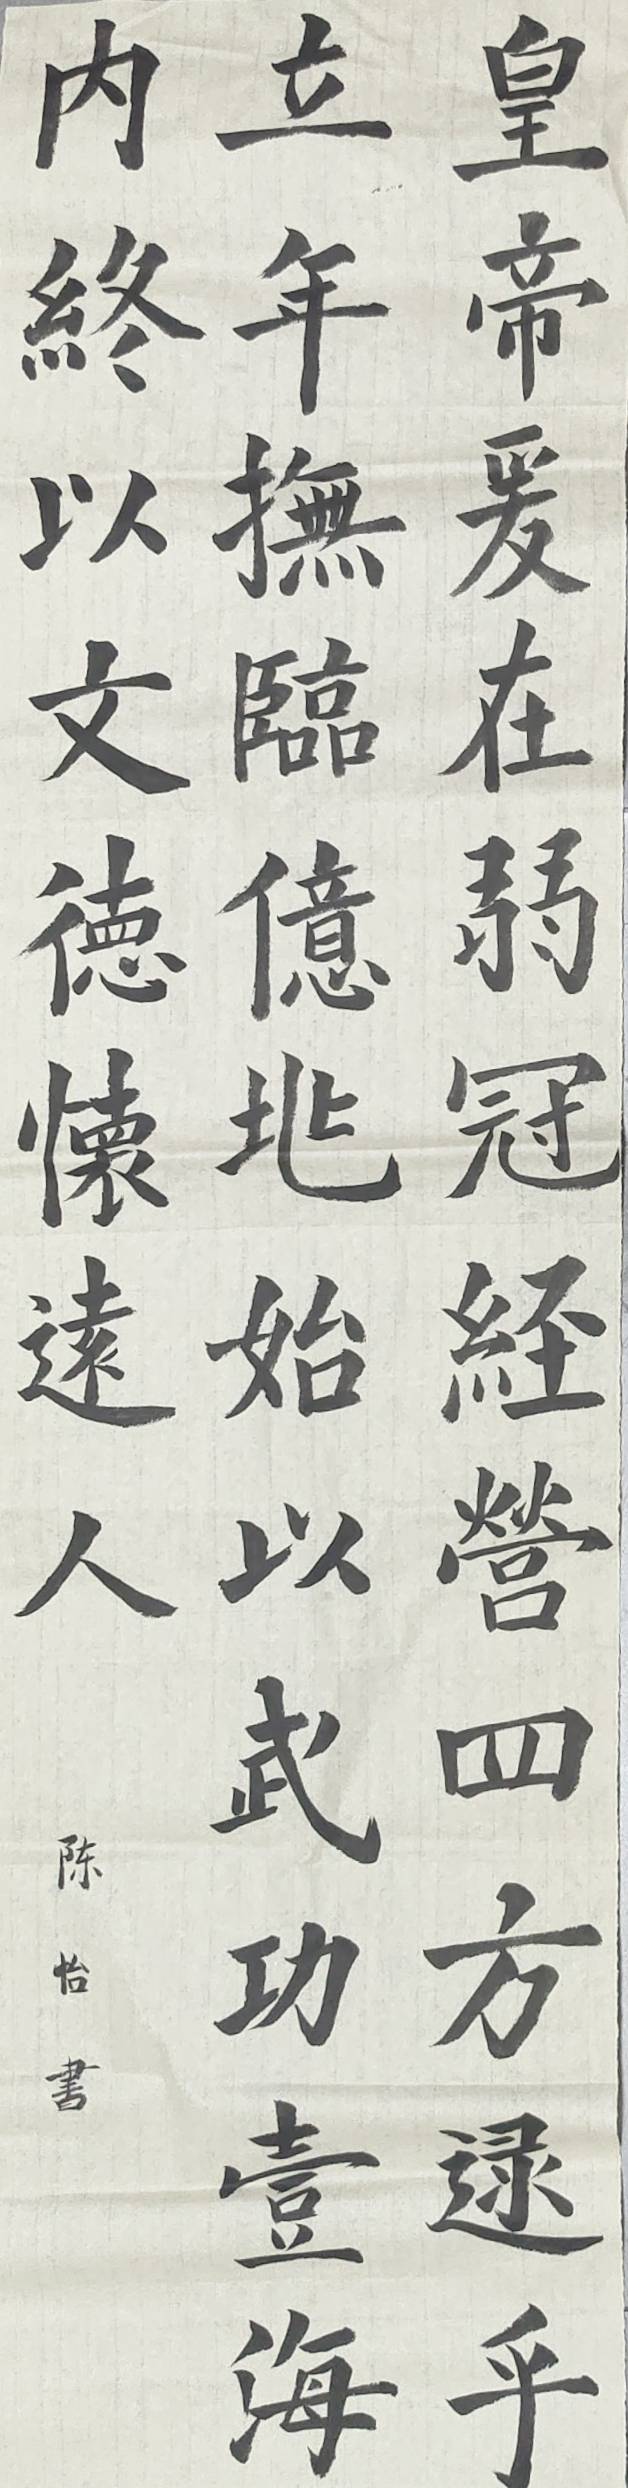 皇帝爰在弱冠経營四方逯乎
立年撫臨億兆始以武功壹海
内終以文徳懐遠人
陈怡書